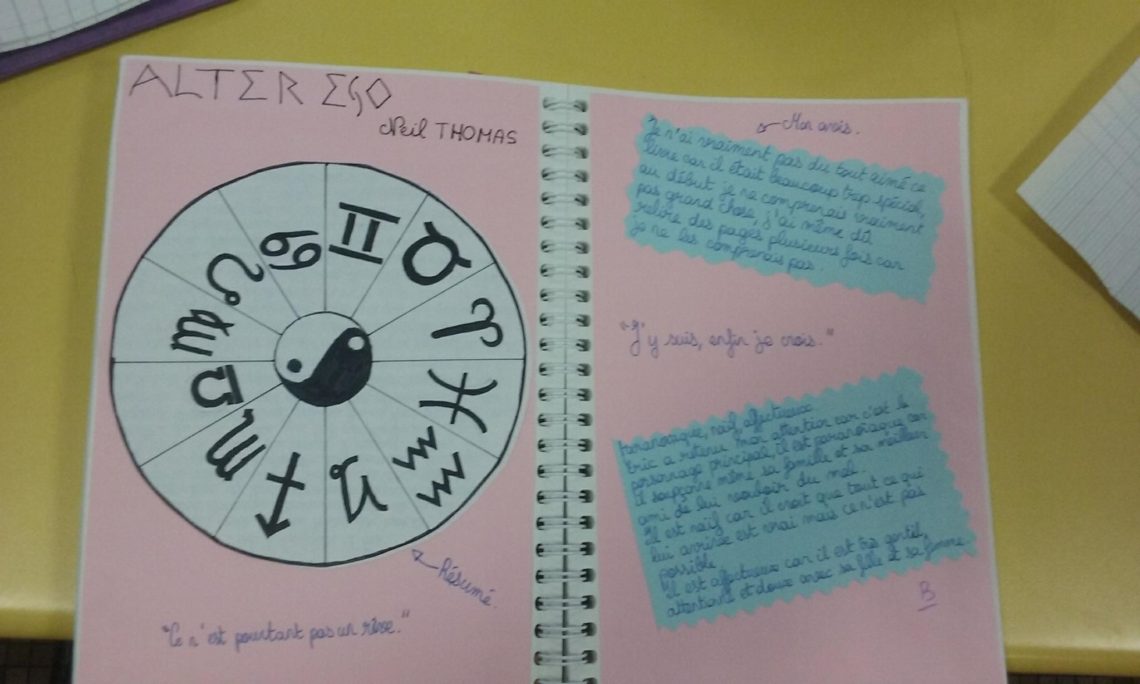 ALTER EGO
Neil THOMAS
Résumé.
"Ce n'est pourtant pas un rêve."
Mon avis.
Je n'ai vraiment pas du tout aimé ce
livre car il était beaucoup trop spécial,
au début je ne comprenais vraiment
pas grand chose, j'ai même dû
relire des pages plusieurs fois car
je ne les comprenais pas.
"J'y suis, enfin je crois."
Paranoïaque, naïf, affectueux
Eric a retenu mon attention car c'est le
personnage principale, il est paranoïaque car
il soupçonne même sa famille et son meilleur
ami de lui vouloir du mal.
Il est naïf car il croit que tout ce qui
lui arrive est vrai mais ce n'est pas
possible
Il est affectueux car il est très gentil,
attentionné et doux avec sa fille et sa femme.
B